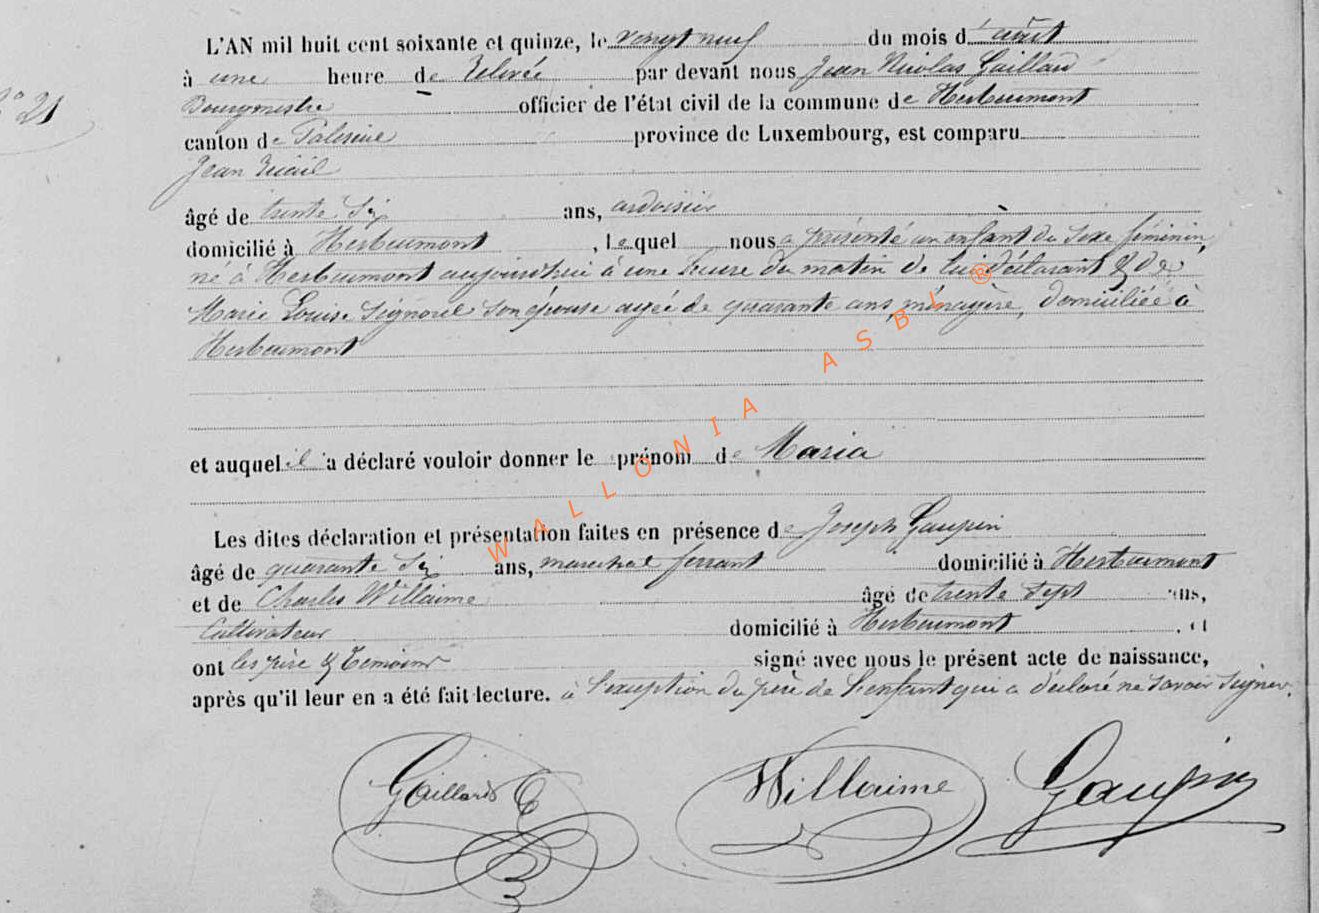 L'AN mil huit cent soixante et quinze, le vingt neuf du mois d'août
à une heure de relevée par devant nous Jean Nicolas Gaillard
N° 21
Bourgmestre officier de l'état civil de la commune de Herbeumont
canton de Paliseul province de Luxembourg, est comparu
Jean
âgé de trente six ans, ardoisier
domicilié à Herbeumont, lequel nous a présenté un enfant du sexe féminin,
né à Herbeumont aujourd'hui à une heure du matin de lui déclarant & de
Marie Louise Signorel son épouse agée de quarante ans, ménagère, domiciliée à
Herbeumont
et auquel il a déclaré vouloir donner le prénom de Maria
Les dites déclaration et présentation faites en présence de Joseph Gaupin
âgé de quarante six ans, marechal ferrant domicilié à Herbeumont
et de Charles Willaime âgé de trente sept ans,
Cultivateur domicilié à Herbeumont, et
ont les père & témoins signé avec nous le présent acte de naissance,
après qu'il leur en a été fait lecture. à l'exception du père de l'enfant qui a déclaré ne savoir signer.
Gaillard Willaime Gaupin
WALLONIA ASBL ®